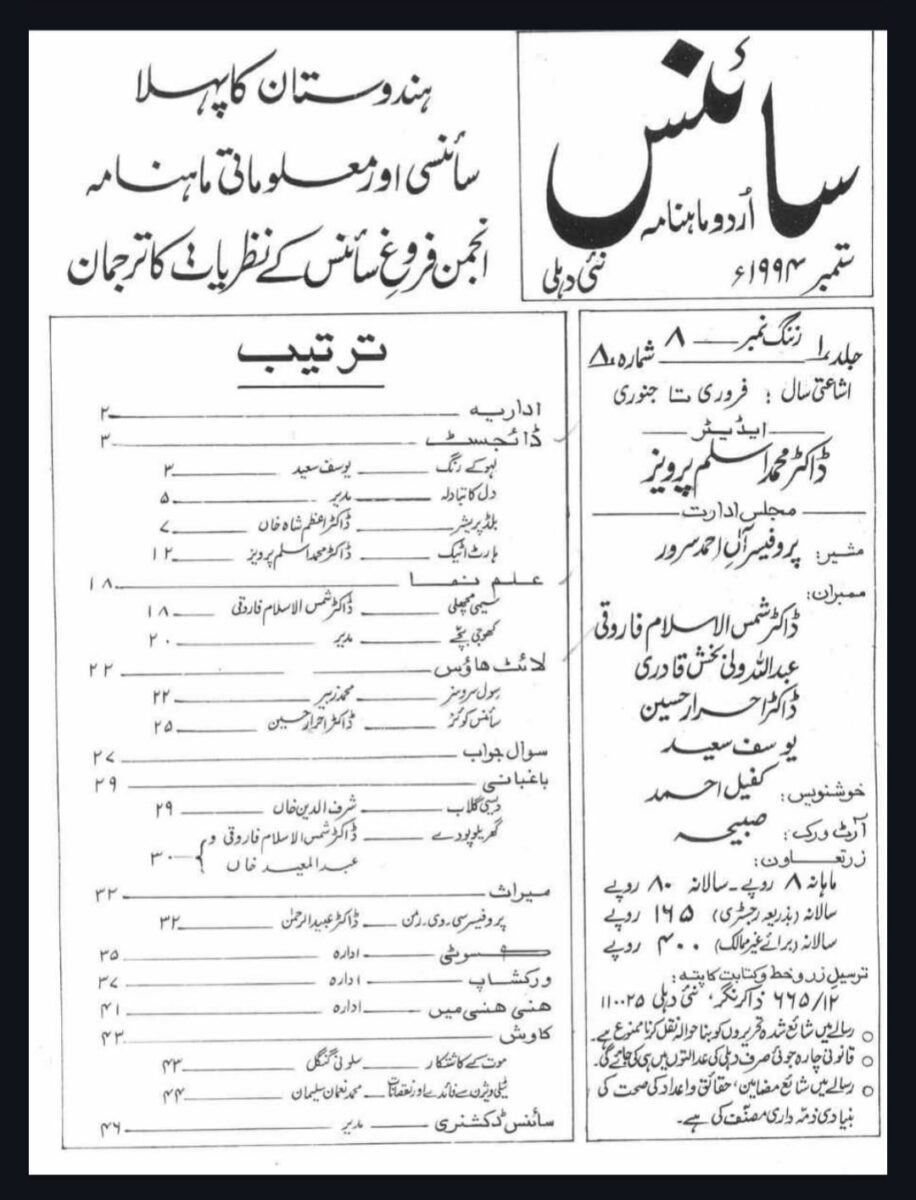 سائنس
اُردو ماہنامہ
ستمبر ۱۹۹۴ء نئی دہلی
ہندوستان کا پہلا
سائنسی اور معلوماتی ماہنامہ
انجمن فروغِ سائنس کے نظریات کا ترجمان
جلد ۱ رننگ نمبر — ۸ شمارہ ۸
اشاعتی سال : فروری تا جنوری
ایڈیٹر
ڈاکٹر محمد اسلم پرویز
مجلس ادارت
مشیر: پروفیسر آل احمد سرور
ممبران:
ڈاکٹر شمس الاسلام فاروقی
عبداللہ ولی بخش قادری
ڈاکٹر احرار حسین
یوسف سعید
خوشنویس: کفیل احمد
آرٹ ورک: صبیحہ
زر تعاون:
ماہانہ ۸ روپے - سالانہ ۸۰ روپے
سالانہ (بذریعہ رجسٹری) ۱۶۵ روپے
سالانہ (برائے غیر ممالک) ۴۰۰ روپے
ترسیل زر و خط و کتابت کا پتہ:
۶۶۵/۱۲ ذاکر نگر، نئی دہلی ۱۱۰۰۲۵
رسالے میں شائع شدہ تحریروں کو بنا حوالہ نقل کرنا ممنوع ہے۔
قانونی چارہ جوئی صرف دہلی کی عدالتوں میں ہی کی جائے گی۔
رسالے میں شائع مضامین، حقائق و اعداد کی صحت کی
بنیادی ذمہ داری مصنّف کی ہے۔
ترتیب
اداریہ — ۲
ڈائجسٹ — ۳
لہو کے رنگ — یوسف سعید — ۳
دل کا تبادلہ — مدیر — ۵
بلڈ پریشر — ڈاکٹر اعظم شاہ خاں — ۷
ہارٹ اٹیک — ڈاکٹر محمد اسلم پرویز — ۱۲
علم نما — ۱۸
سیمی مچھلی — ڈاکٹر شمس الاسلام فاروقی — ۱۸
کھوجی بچے — مدیر — ۲۰
لائٹ ھاؤس — ۲۲
سول سروسز — محمد زبیر — ۲۲
سائنس کوئز — ڈاکٹر احرار حسین — ۲۵
سوال جواب — ۲۷
باغبانی — ۲۹
دیسی گلاب — شرف الدین خاں — ۲۹
گھریلو پودے — ڈاکٹر شمس الاسلام فاروقی و
عبدالمعید خاں — ۳۰
میراث — ۳۲
پروفیسر سی۔ وی۔ رمن — ڈاکٹر عبید الرحمٰن — ۳۲
کسوٹی — ادارہ — ۳۵
ورکشاپ — ادارہ — ۳۷
ھنی ھنی میں — ادارہ — ۴۱
کاوش — ۴۳
موت کے کاشتکار — سلونی گنگل — ۴۳
ٹیلی ویژن سے فائدے اور نقصانات — محمد نعمان سلیمان — ۴۴
سائنس ڈکشنری — مدیر — ۴۶